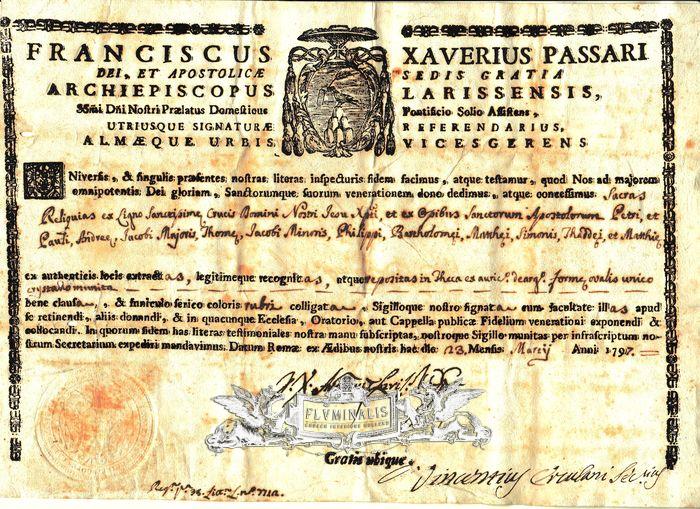 FRANCISCUS XAVERIUS PASSARI
DEI, ET APOSTOLICÆ SEDIS GRATIA
ARCHIEPISCOPUS LARISSENSIS,
SSmi Dñi Nostri Prælatus Domesticus Pontificio Solio Assistens,
UTRIUSQUE SIGNATURÆ REFERENDARIUS,
ALMÆQUE URBIS VICESGERENS
UNiversis, & singulis præsentes nostras literas inspecturis fidem facimus, atque testamur, quod Nos ad majorem
omnipotentis Dei gloriam, Sanctorumque suorum venerationem dono dedimus, atque concessimus Sacras
Reliquias ex Ligno Sanctissime Crucis Domini Nostri Jesu Xpti, et ex Ossibus Sanctorum Apostolorum Petri, et
Pauli, Andreę, Jacobi Majoris, Thomę, Jacobi Minoris, Philippi, Bartholomęi, Matthęi, Simonis, Thaddęi, et Matthię
ex authenticis locis extractas, legitimeque recognitas, atque repositas in Theca ex auric. de arg. formę ovalis unico
crystallo munita
bene clausa, & funiculo serico coloris rubri colligata, Sigilloque nostro signata cum facultate illas apud
se retinendi, aliis donandi, & in quacunque Ecclesia, Oratorio, aut Cappella publicæ Fidelium venerationi exponendi &
collocandi. In quorum fidem has literas testimoniales nostra manu subscriptas, nostroque Sigillo munitas per infrascriptum no-
strum Secretarium expediri mandavimus. Datum Romæ ex Ædibus nostris hac die 23 Mensis Martij Anni 1797.
FLVMINALIS
Gratis ubique.
Vincentius Erculani Sec.rius